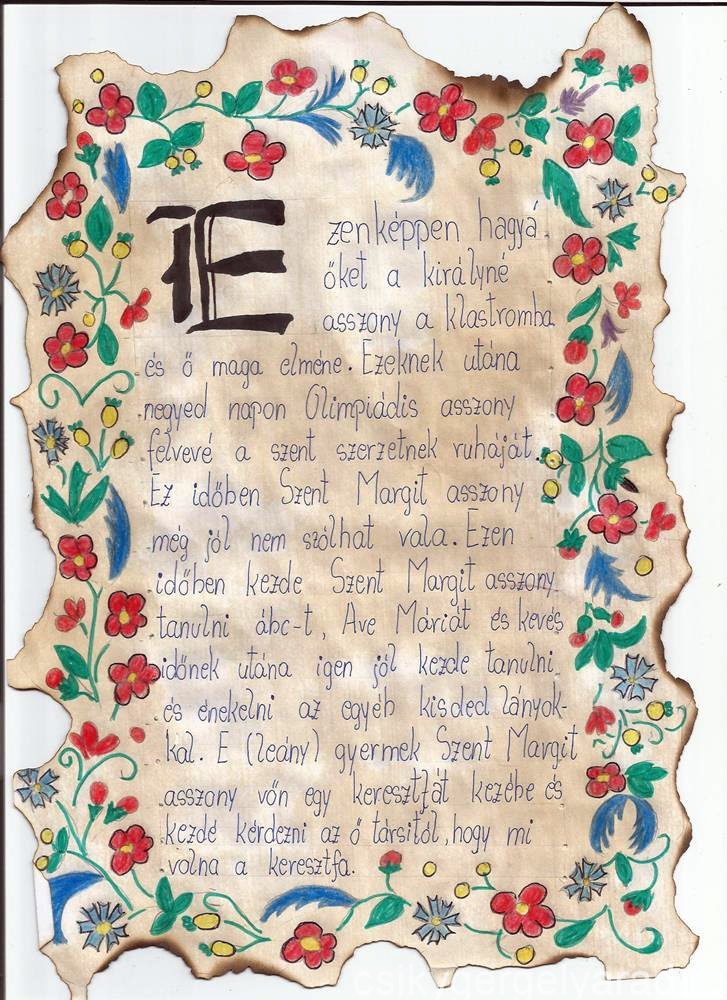 Ezenképpen hagyá
őket a királyné
asszony a klastromba
és ő maga elméne. Ezeknek utána
negyed napon Olimpiádis asszony
felvevé a szent szerzetnek ruháját.
Ez időben Szent Margit asszony
még jól nem szólhat vala. Ezen
időben kezde Szent Margit asszony
tanulni ábc-t, Ave Máriát és kevés
időnek utána igen jól kezde tanulni
és énekelni az egyéb kisded lányok-
kal. E (leány) gyermek Szent Margit
asszony vőn egy keresztfát kezébe és
kezdé kérdezni az ő társitól, hogy mi
volna a keresztfa.